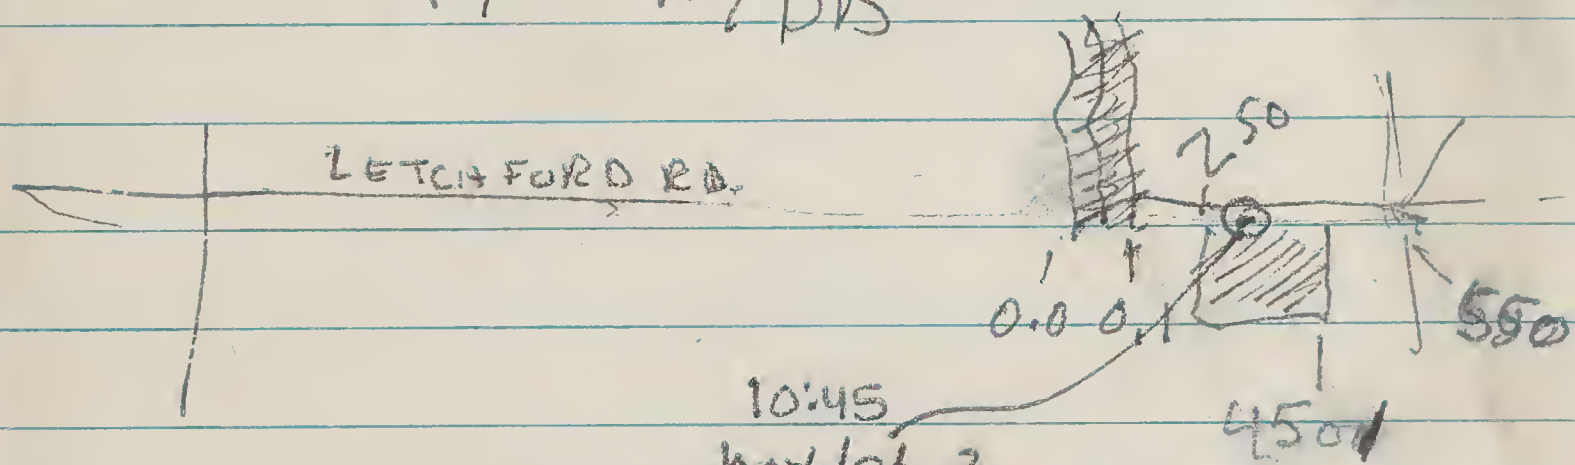 LETCHFORD RD.
250
0.0 0.1
550
10:45
450